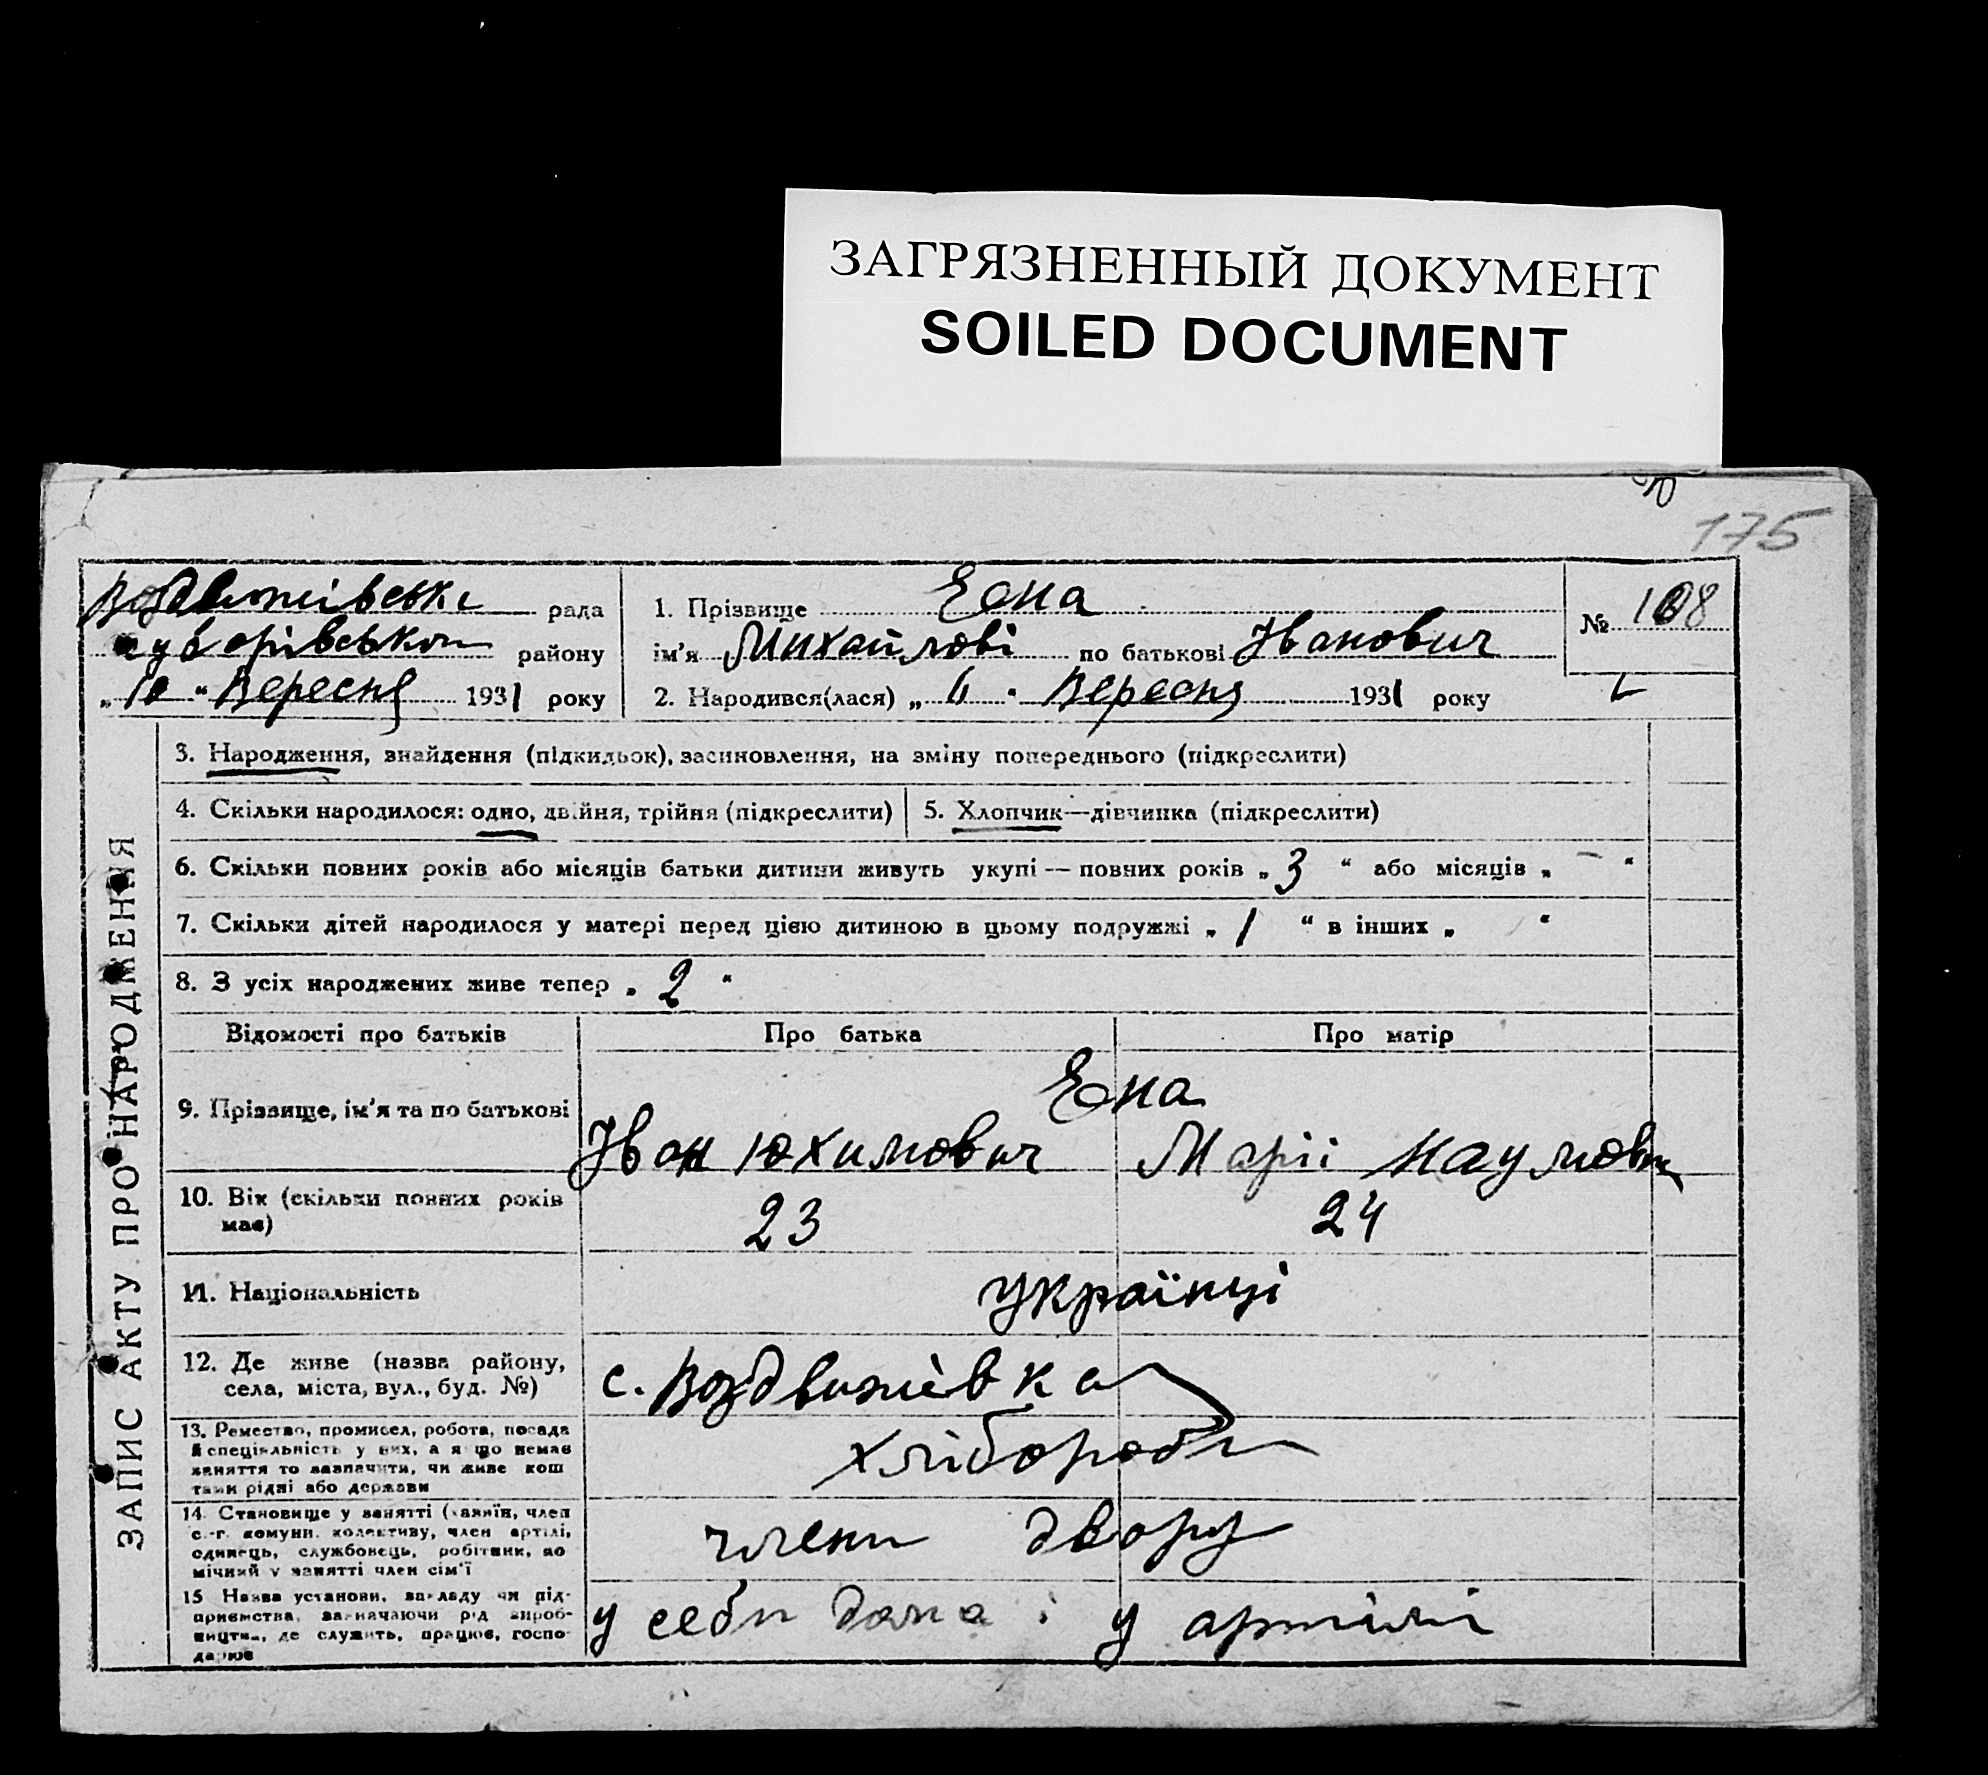 ЗАГРЯЗНЕННЫЙ ДОКУМЕНТ
SOILED DOCUMENT
175
Воздвижівська рада
району
„10“ Вересня 1931 року
1. Прізвище Єна
ім'я Михайлові по батькові Іванович
№ 108
2. Народився(лася) „6“ Вересня 1931 року
ЗАПИС АКТУ ПРО НАРОДЖЕННЯ
3. Народження, знайдення (підкидьок), засиновлення, на зміну попереднього (підкреслити)
4. Скільки народилося: одно, двійня, трійня (підкреслити)
5. Хлопчик—дівчинка (підкреслити)
6. Скільки повних років або місяців батьки дитини живуть укупі — повних років „3“ або місяців „—“
7. Скільки дітей народилося у матері перед цією дитиною в цьому подружжі „1“ в інших „ “
8. З усіх народжених живе тепер „2“
Відомості про батьків Про батька Про матір
Єна
9. Прізвище, ім'я та по батькові Іван Юхимович Марії Наумовн
10. Вік (скільки повних років має) 23 24
11. Національність українці
12. Де живе (назва району, села, міста, вул., буд. №) с. Воздвижівка
13. Ремество, промисел, робота, посада й спеціяльність у них, а якщо немає заняття то зазначити, чи живе коштами рідні або держави
хлібороби
14. Становище у занятті (хазяїн, член с.-г. комуни, колективу, член артілі, одинець, службовець, робітник, помічний у занятті член сім'ї
члени двору
15 Назва установи, закладу чи підприємства, зазначаючи рід виробництва, де служить, працює, господарює
у себи дома і у артілі